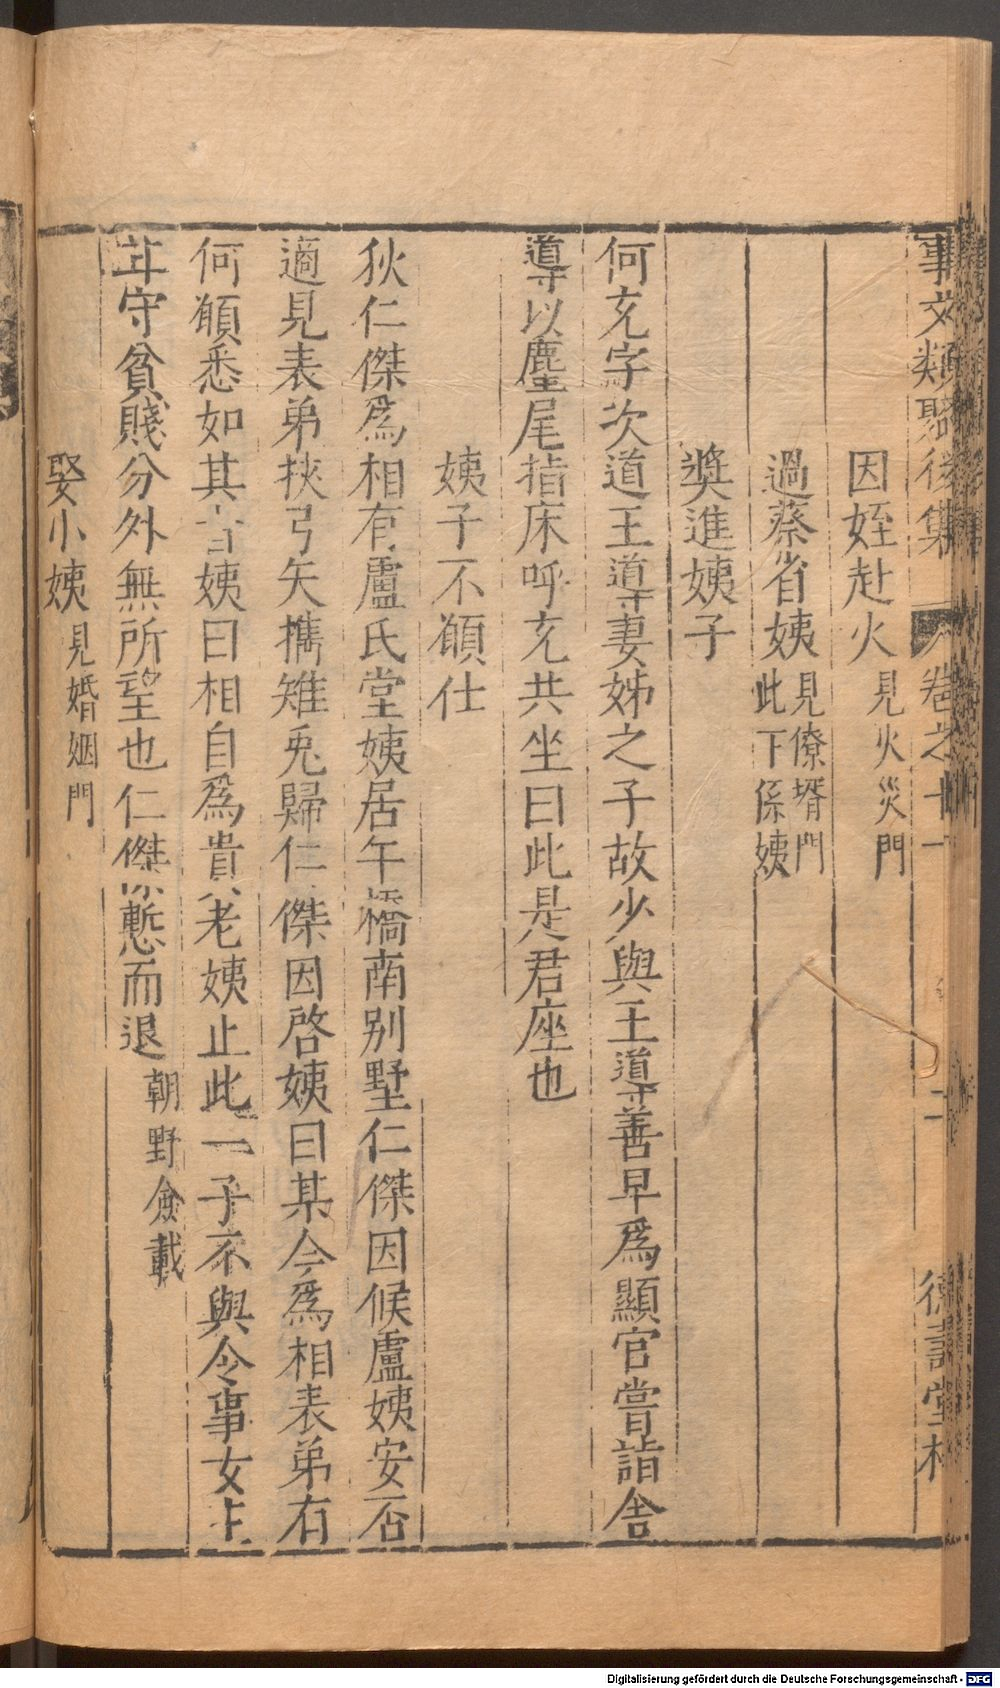 事文類聚後集 卷之十一 二 德壽堂梓
因姪赴火見火災門
過蔡省姨見僚壻門此下係姨
奬進姨子
何充字次道王導妻姊之子故少與王導善早為顯官嘗詣舍
導以麈尾指床呼充共坐曰此是君座也
姨子不願仕
狄仁傑為相有盧氏堂姨居午橋南别墅仁傑因候盧姨安否
適見表弟挾弓矢携雉兎歸仁傑因啓姨曰某今為相表弟有
何願悉如其 姨曰相自為貴老姨止此一子不與令事女主
守貧賤分外無所望也仁傑慙而退朝野僉載
娶小姨見婚姻門
Digitalisierung gefördert durch die Deutsche Forschungsgemeinschaft - DFG